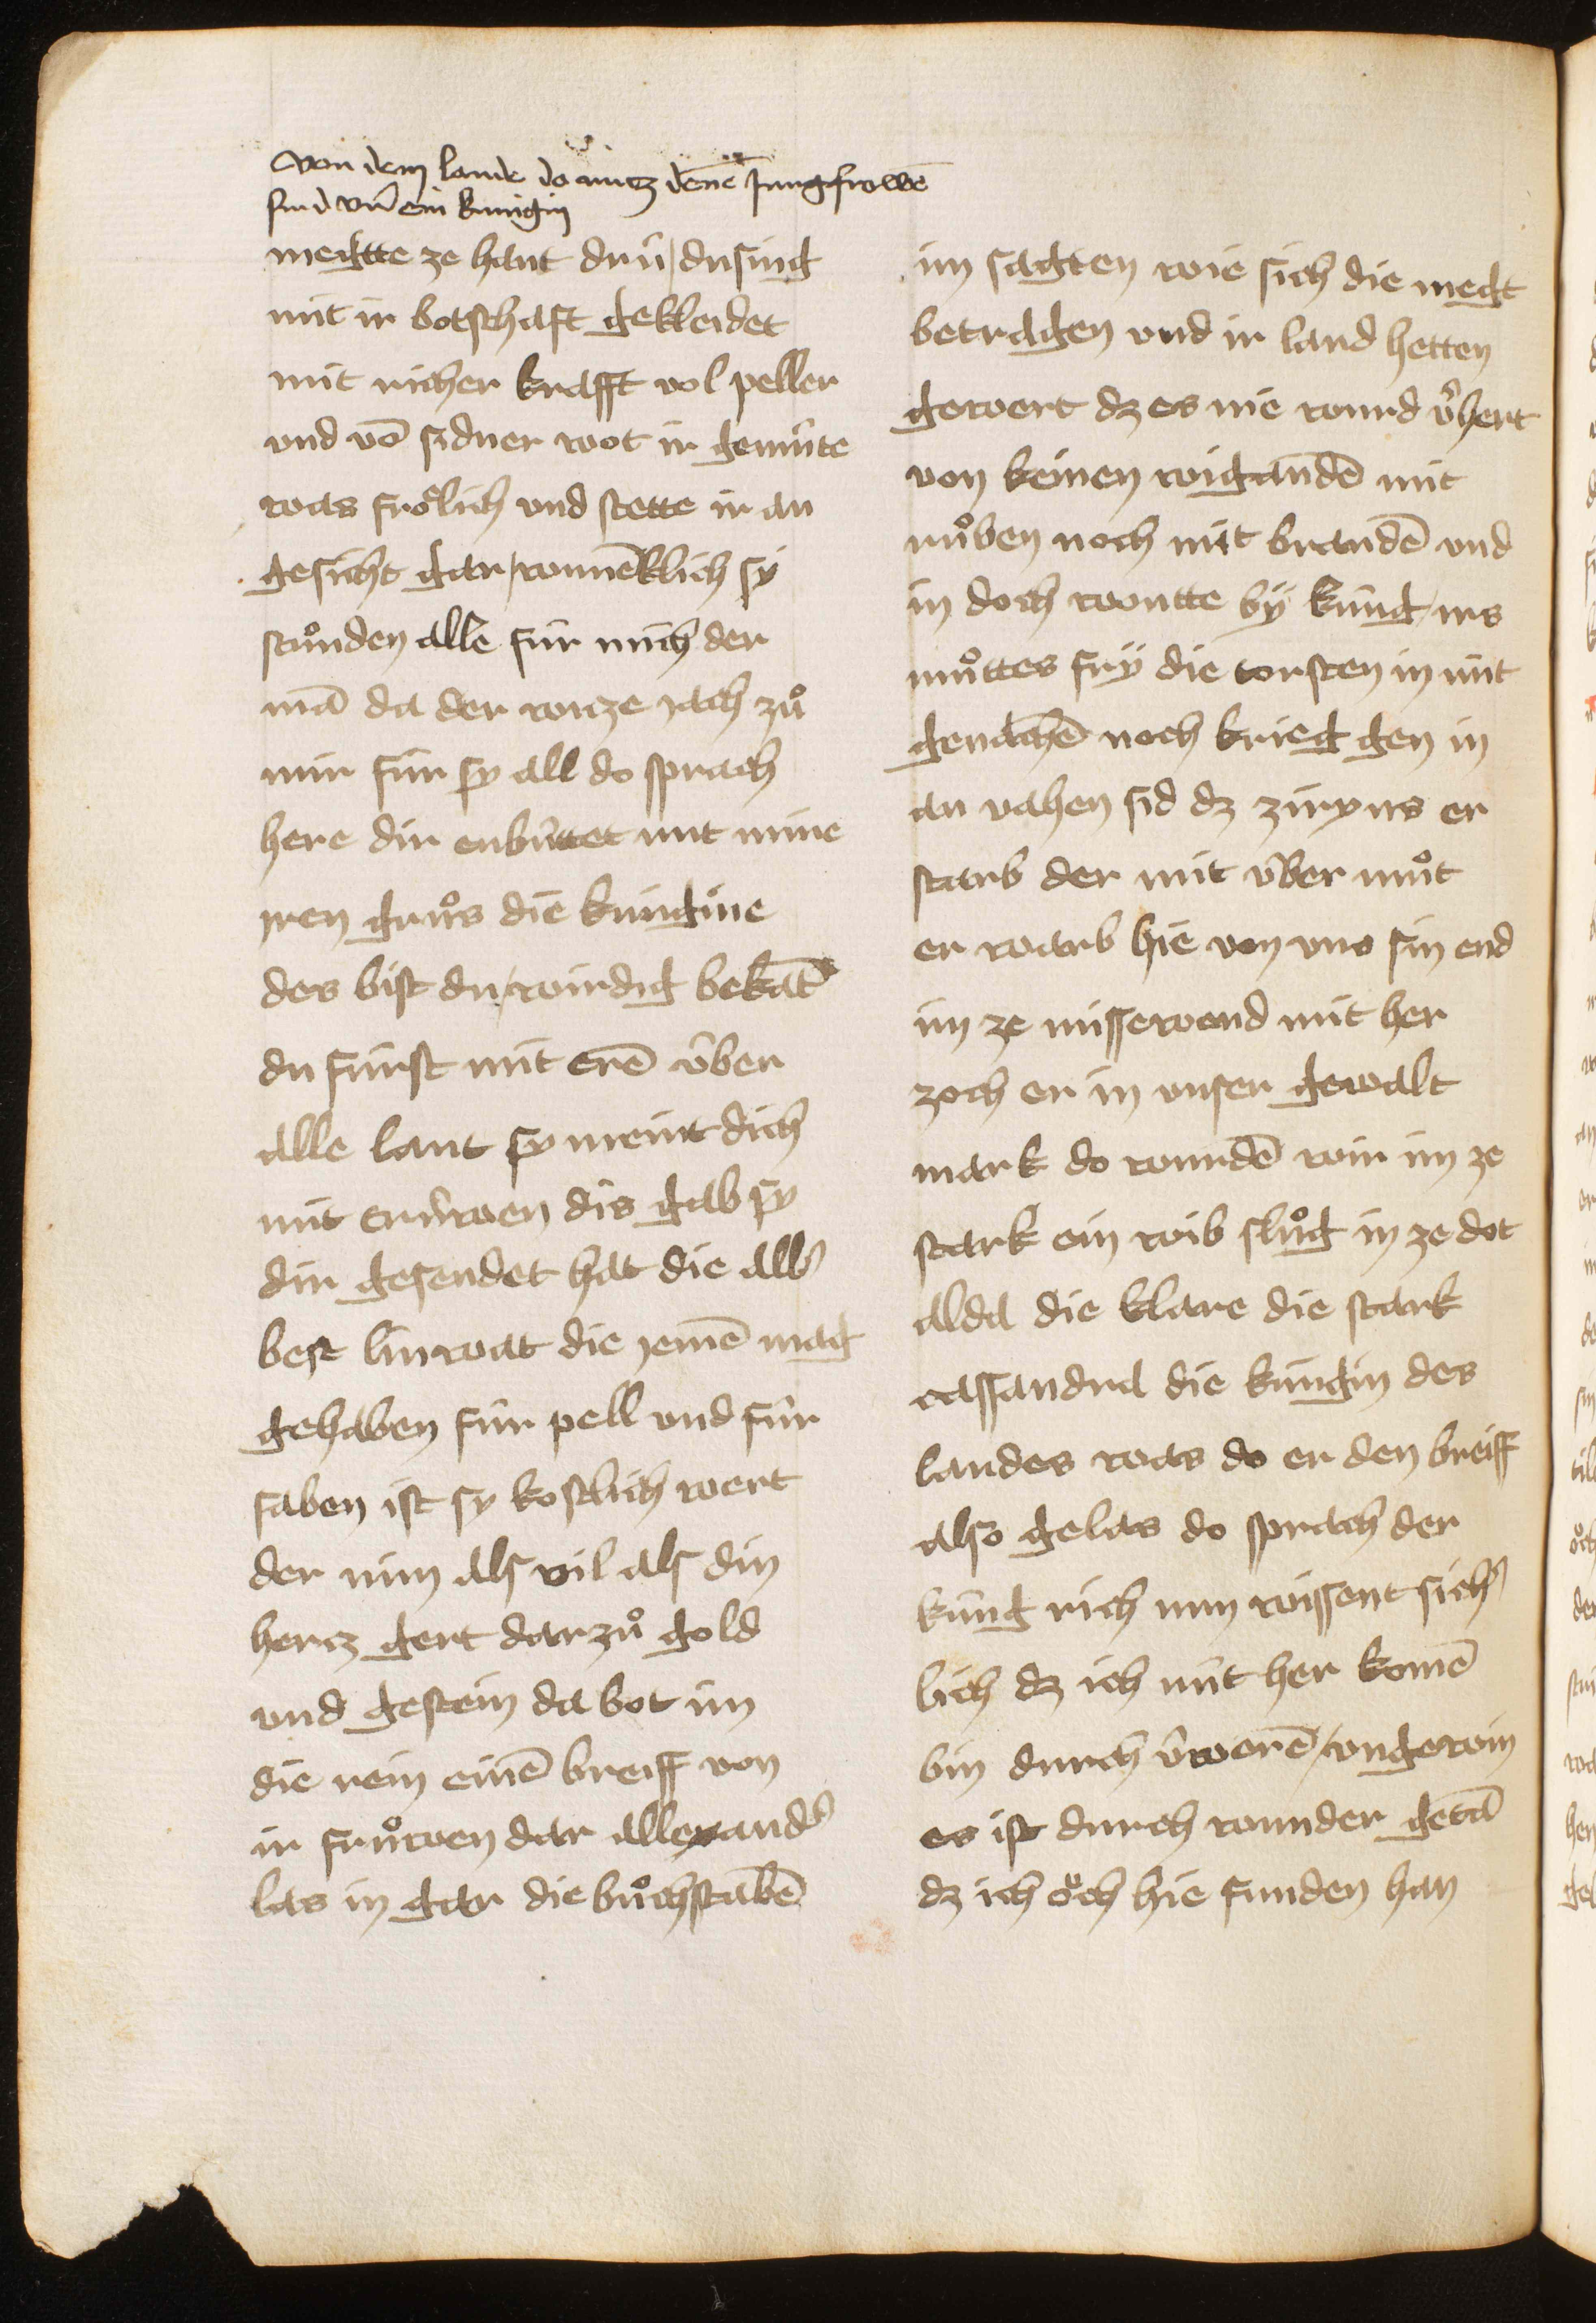 von dem lande do nútz denē Jungfrowē
sind vn̄ ein kúngin
megtte ze hant drú dusing
mit ir botschaft gekleidet
mit richer krafft vol peller
vnd vō sidner wot ir gemúte
was frölich vnd stette ir an
gesicht gar wunēklich sy
stůnden alle fúr mich der
mā da der witze iach zů
mir fúr sy all do sprach
here dir enbúttet mit mine
iren grůs die kúngine
des bist du wirdig bekāt
du fúrst mit erē v́ber
alle lant sy meint dich
mit trúwen dis gab sy
dir gesendet hat die allʼ
best linwat die iemē mag
gehaben fúr pell vnd fúr
faben ist sy kostlich wert
der nim als vil als din
hercz gert dar zů gold
vnd gestein da bot im
die rein einē breiff von
ir frůwen dar allexandʼ
las in gar die bůchstabē
im sagten wie sich die megt
betragen vnd ir land hetten
gewert dz es nie wurd v́hert
von keinen wigandē mit
růben noch mit brandē vnd
in doch wontte bÿ kúng irs
můttes frÿ die torsten in nit
genachē noch krieg gen in
an vahen sid dz zirus er
starb der mit v́ber můt
er warb hie von vns sin end
im ze missewend mit her
zoch er in vnser gewalt
mark do wurdē wir im ze
stark ein wib slůg in ze dot
alda die klare die stark
cassandra die kúngin des
landes was do er den breiff
also gelas do sprach der
kúng rich nun wissent sichʼ
lich dz ich nút her komē
bin durch v́werē vngewin
es ist durch wunder getā
dz ich öch hie funden han